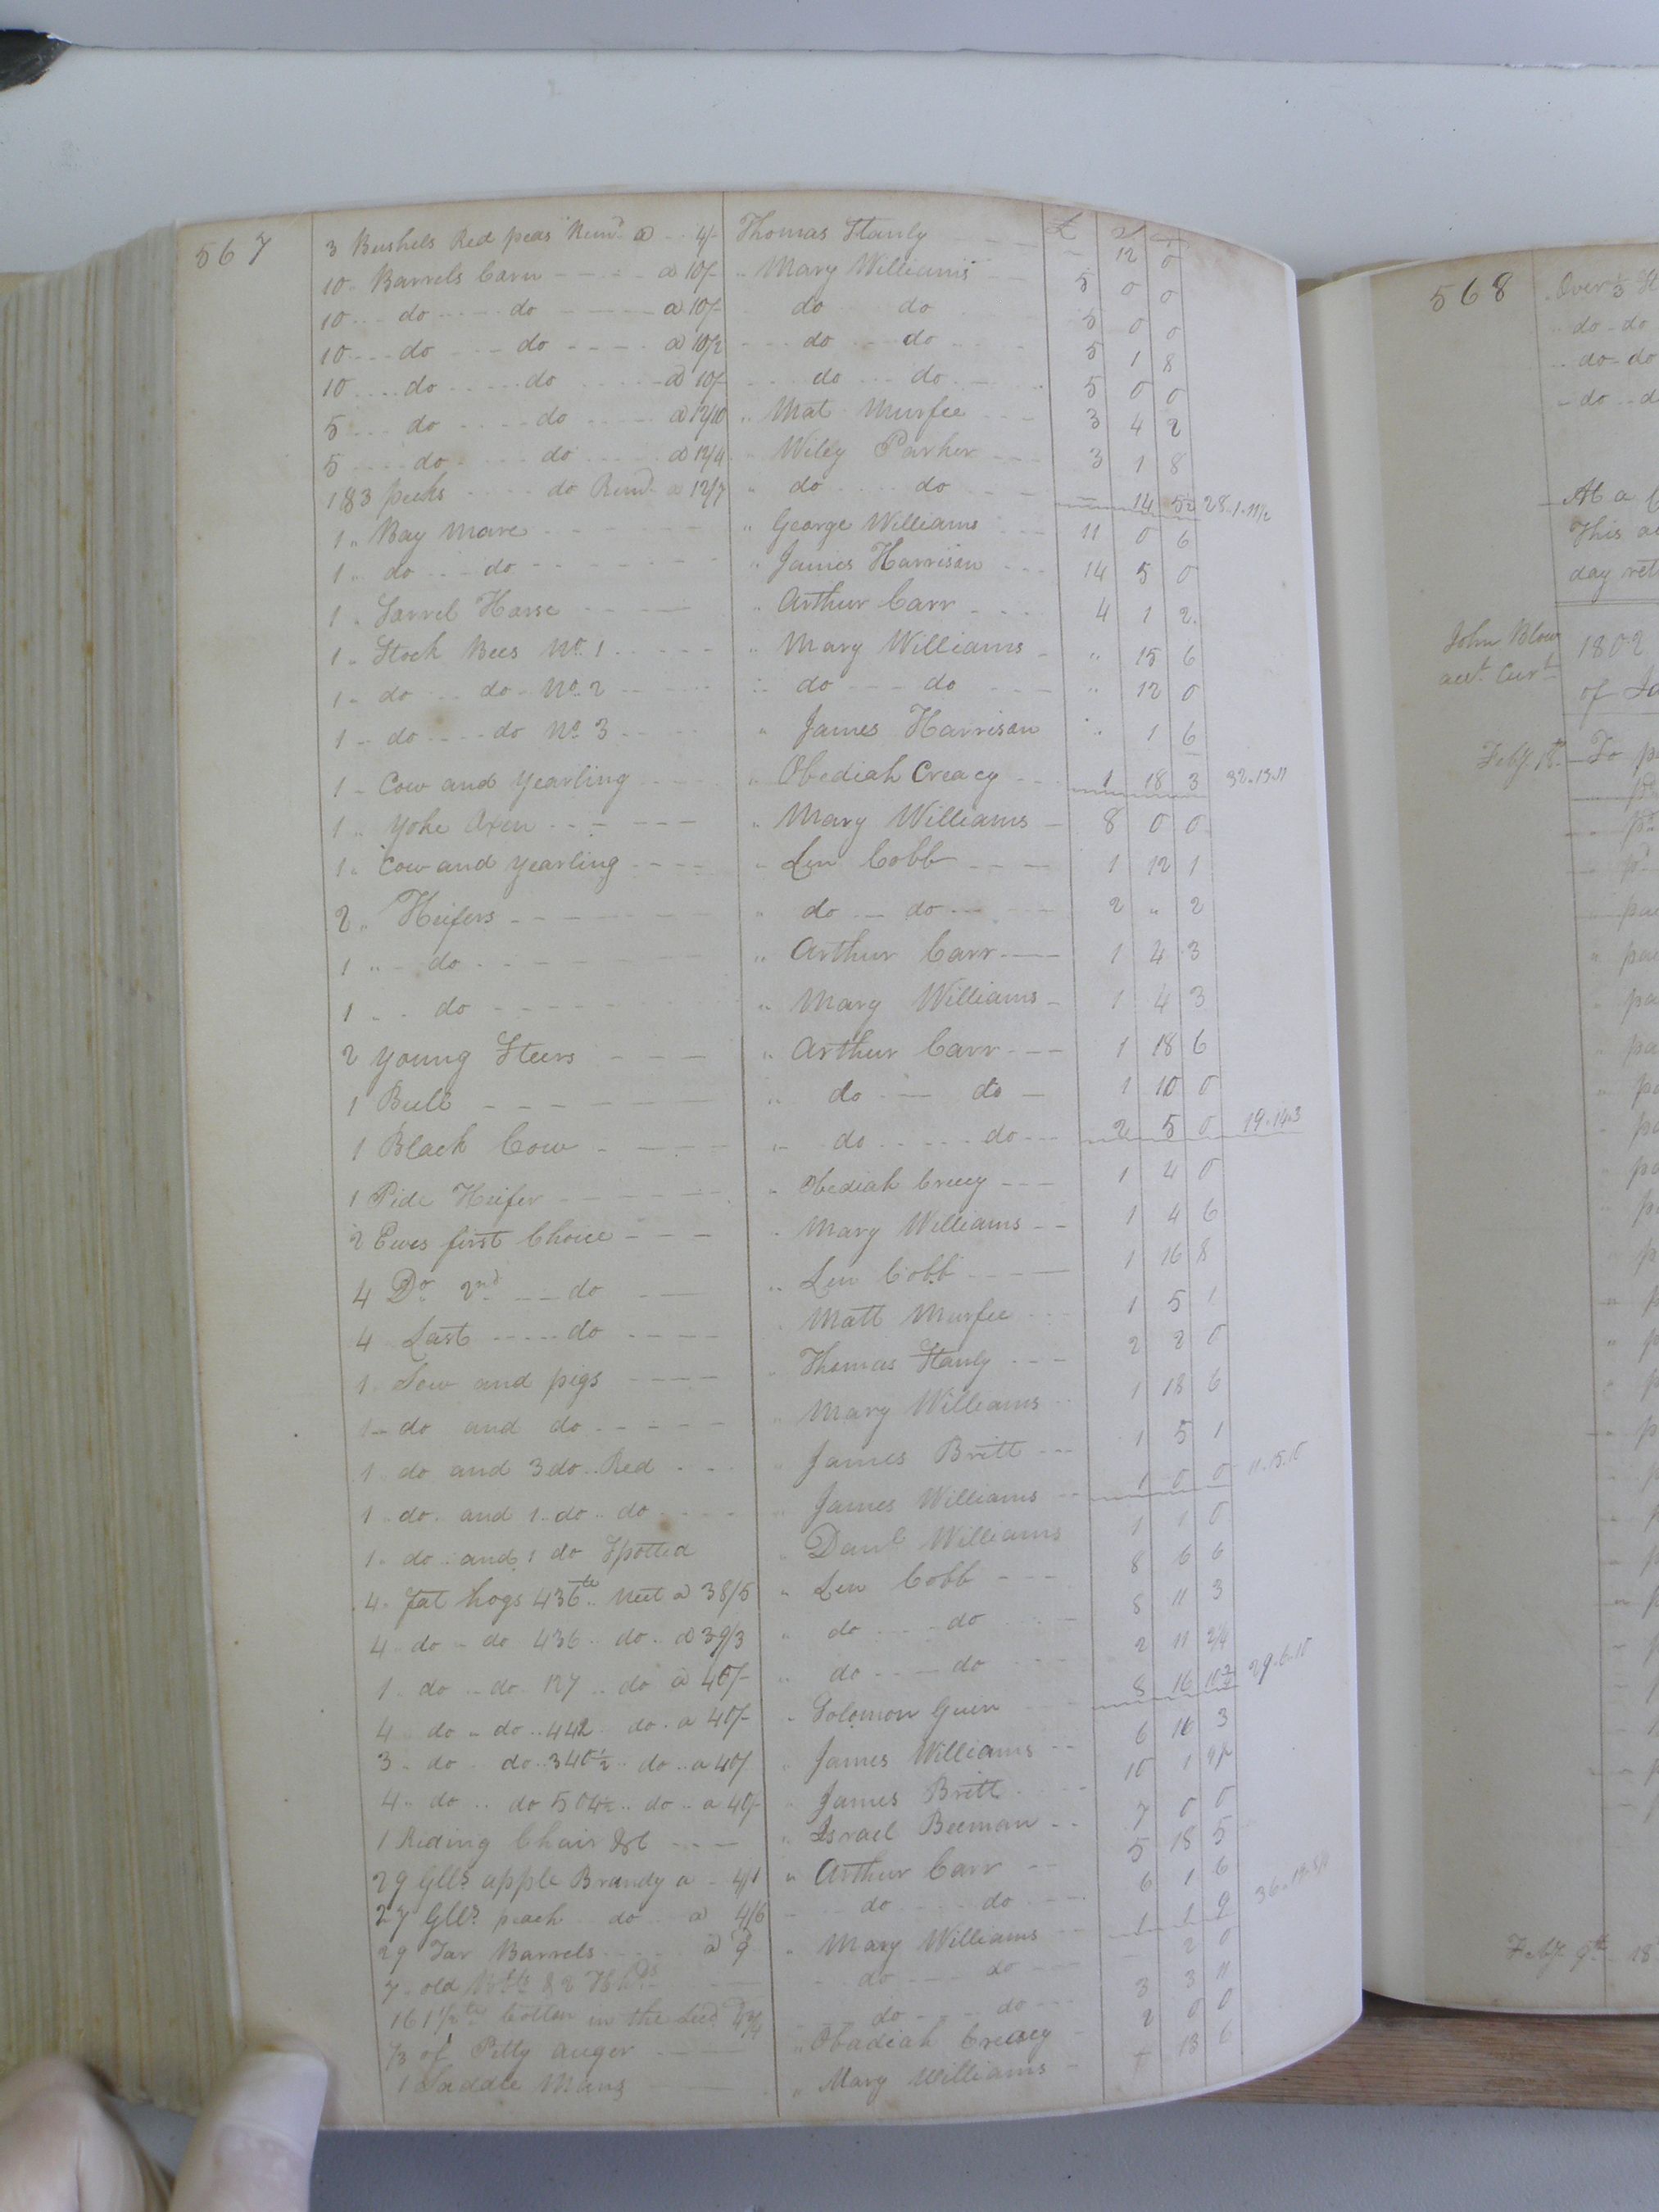 567
£ S d
3 Bushels Red peas Remd a 4/- Thomas Stanly - 12 0
10 Barrels Corn a 10/- " Mary Williams 5 0 0
10 do do a 10/- do do 5 0 0
10 do do a 10/2 do do 5 1 8
10 do do a 10/- do do 5 0 0
5 do do a 12/10 " Mat Murfee 3 4 2
5 do do a 12/4 " Wiley Parker 3 1 8
183 pecks do Remd a 12/7 " do do - 14 5½ 28.1.11½
1 " Bay Mare " George Williams 11 0 6
1 " do do " James Harrison 14 5 0
1 " Sorrel Horse " Arthur Carr 4 1 2
1 " Stock Bees No. 1 " Mary Williams " 15 6
1 - do do No. 2 " do do " 12 0
1 - do do No. 3 " James Harrison " 1 6
1 - Cow and Yearling " Obediah Creacy 1 18 3 32.13.11
1 " Yoke Oxen " Mary Williams 8 0 0
1 " Cow and Yearling " Len Cobb 1 12 1
2 " Heifers " do do 2 " 2
1 " do " Arthur Carr 1 4 3
1 " do " Mary Williams 1 4 3
2 Young Steers " Arthur Carr 1 18 6
1 Bull " do do 1 10 0
1 Black Cow " do do 2 5 0 19.14.3
1 Pide Heifer " Obediah Creecy 1 4 0
2 Ewes first Choice " Mary Williams 1 4 6
4 Do. 2nd do " Len Cobb 1 16 8
4 Last do " Matt Murfee 1 5 1
1 Sow and pigs " Thomas Stanly 2 2 0
1 - do and do " Mary Williams 1 18 6
1 do and 3 do Red " James Britt 1 5 1
1 do and 1 do do " James Williams 1 0 0 11.15.10
1 do and 1 do Spotted " Danl Williams 1 1 0
4 Fat hogs 436 lb nett a 38/5 " Len Cobb 8 6 6
4 do do 436 do a 39/3 " do do 8 11 3
1 do do 127 do a 40/- " do do 2 11 2/4
4 do do 442 do a 40/- " Solomon Guen 8 16 10¾ 29.6.10
3 do do 340½ do a 40/- " James Williams 6 16 3
4 do do 504½ do a 40/- " James Britt 10 1 9½
1 Riding Chair &C " Israel Beeman 7 0 0
29 Glls apple Brandy a 4/1 " Arthur Carr 5 18 5
27 Glls peach do a 4/6 do do 6 1 6
29 Tar Barrels a 9d " Mary Williams 1 1 9
7 old & 2 Hhds do do 2 0
161½ lb Cotton in the Seed do do 3 3 11
⅓ of Pitty auger " Obadiah Creecy 2 0 0
1 Saddle Mans " Mary Williams 13 6
568
Over
do do
do do
do
At a
This
day ret
John Blow
act. Curt.
1802
of
Feby. To
Feby 9th 18